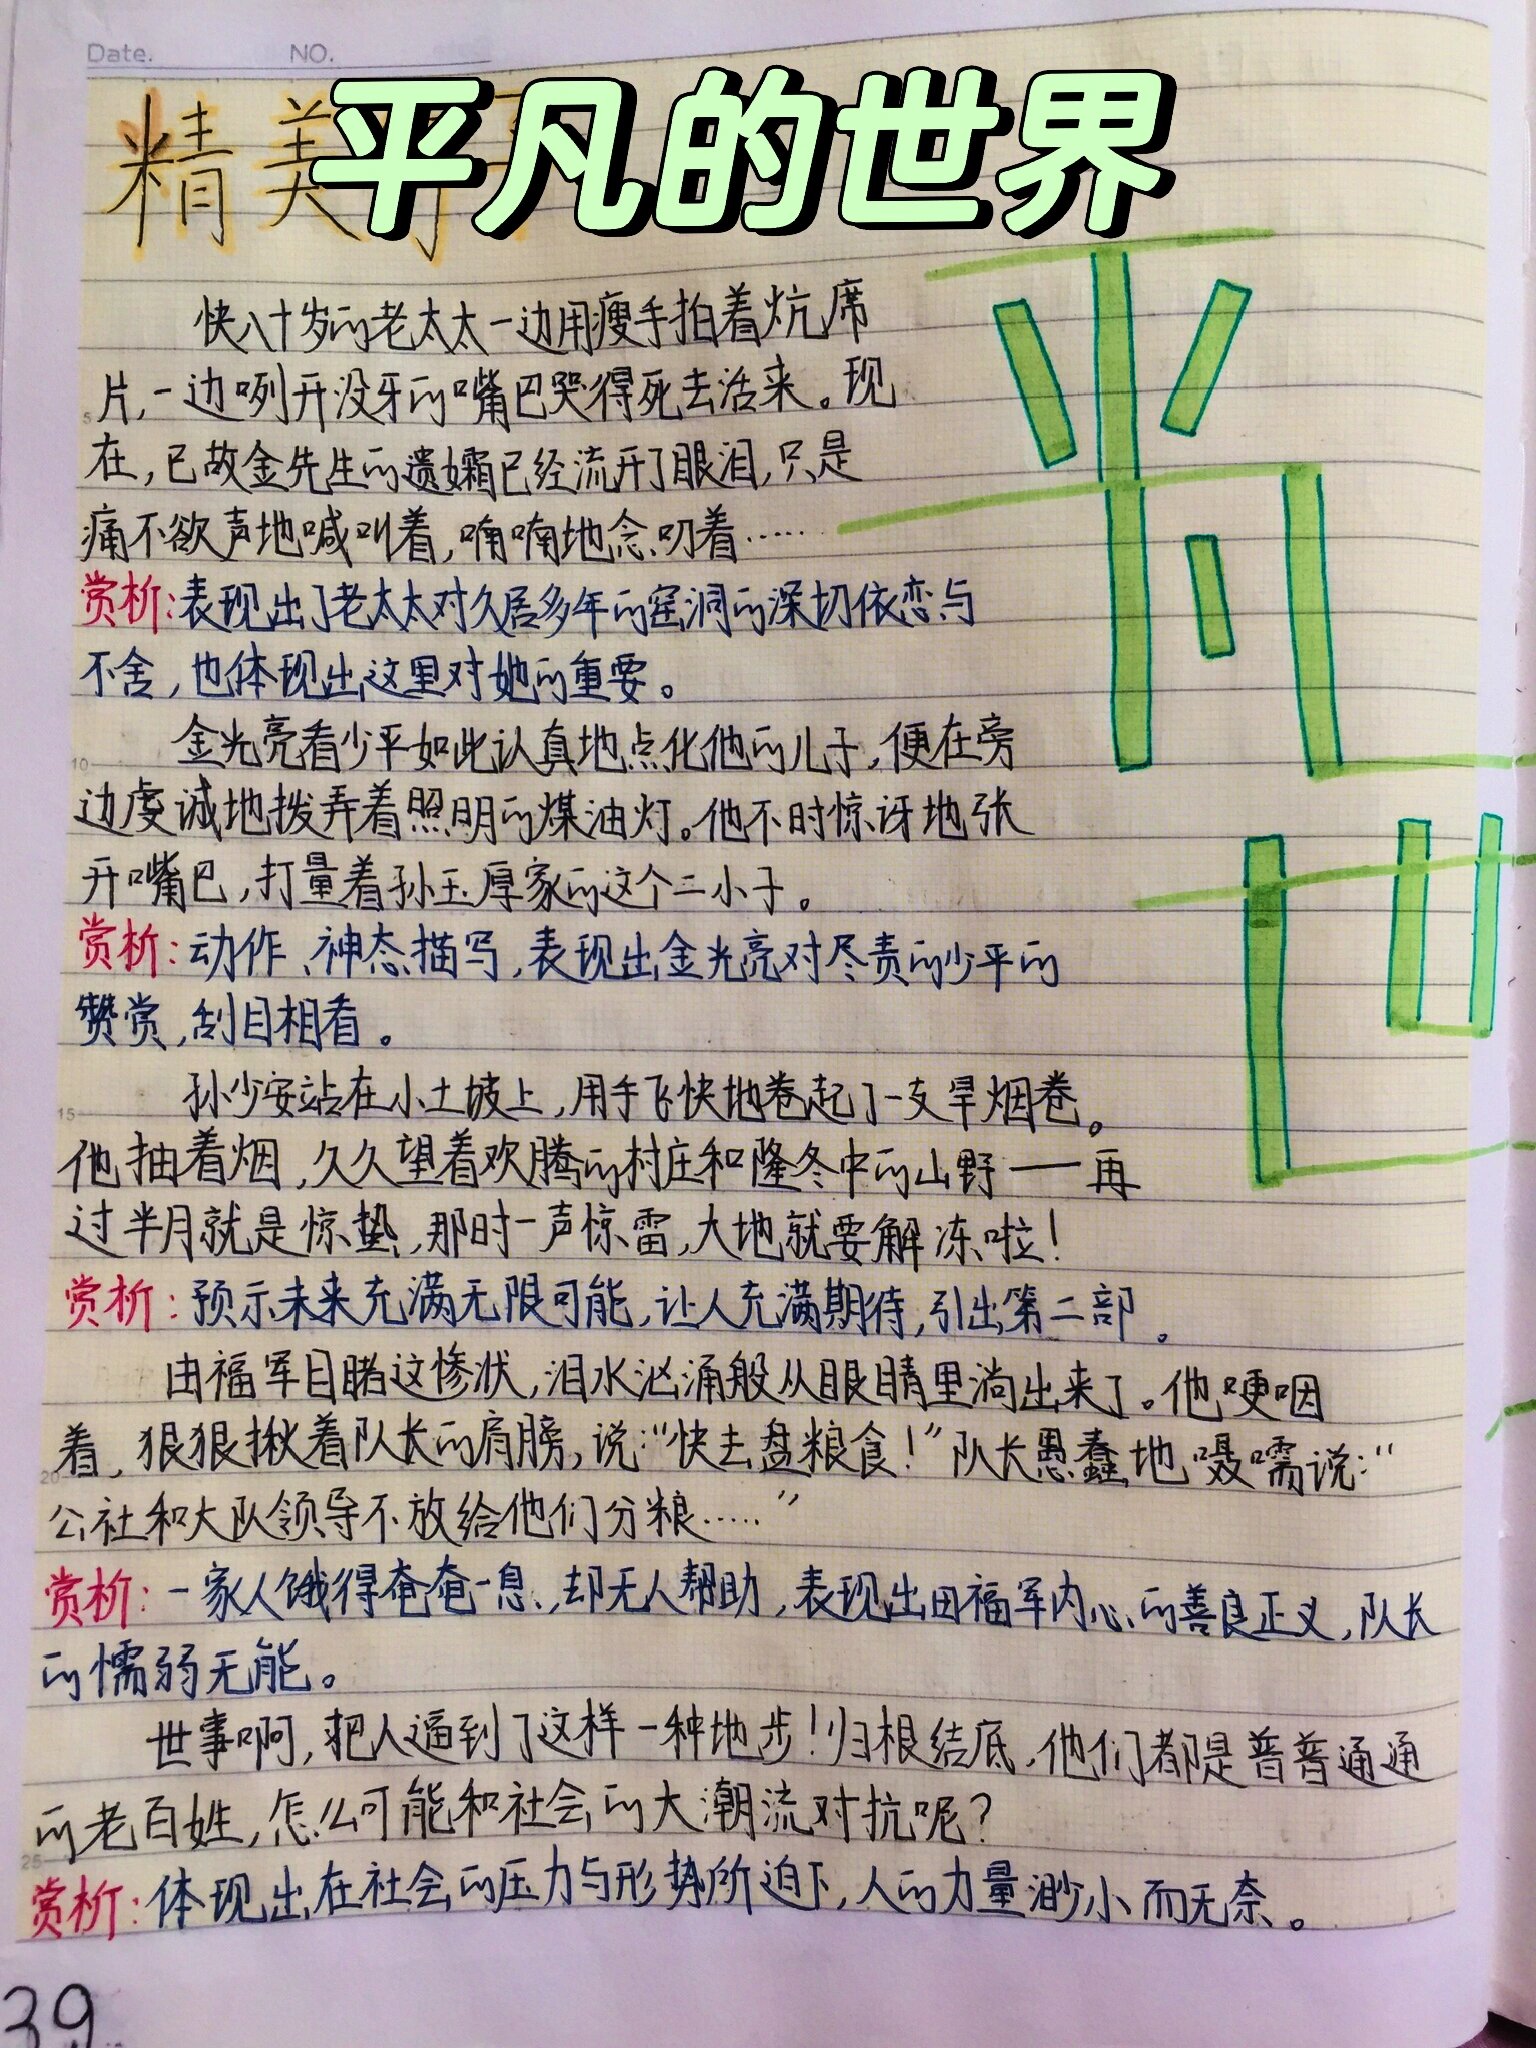 Date. NO.
平凡的世界
精美
快八十岁的老太太一边用瘦手拍着炕席
片,一边咧开没牙的嘴巴哭得死去活来。现
在,已故金先生的遗孀已经流开了眼泪,只是
痛不欲声地喊叫着,喃喃地念叨着……
赏析:表现出了老太太对久居多年的窑洞的深切依恋与
不舍,也体现出这里对她的重要。
金光亮看少平如此认真地点化他的儿子,便在旁
边虔诚地拨弄着照明的煤油灯。他不时惊讶地张
开嘴巴,打量着孙玉厚家的这个二小子。
赏析:动作、神态描写,表现出金光亮对尽责的少平的
赞赏,刮目相看。
孙少安站在小土坡上,用手飞快地卷起了一支旱烟卷。
他抽着烟,久久望着欢腾的村庄和隆冬中的山野——再
过半月就是惊蛰,那时一声惊雷,大地就要解冻啦!
赏析:预示未来充满无限可能,让人充满期待,引出第二部。
由福军目睹这惨状,泪水汹涌般从眼睛里淌出来了。他哽咽
着,狠狠揪着队长的肩膀,说:“快去盘粮食!”队长愚蠢地嗫嚅说:“
公社和大队领导不放给他们分粮……”
赏析:一家人饿得奄奄一息,却无人帮助,表现出田福军内心的善良正义,队长
的懦弱无能。
世事啊,把人逼到了这样一种地步!归根结底,他们都是普普通通
的老百姓,怎么可能和社会的大潮流对抗呢?
赏析:体现出在社会的压力与形势所迫下,人的力量渺小而无奈。
5
10
15
20
25
39